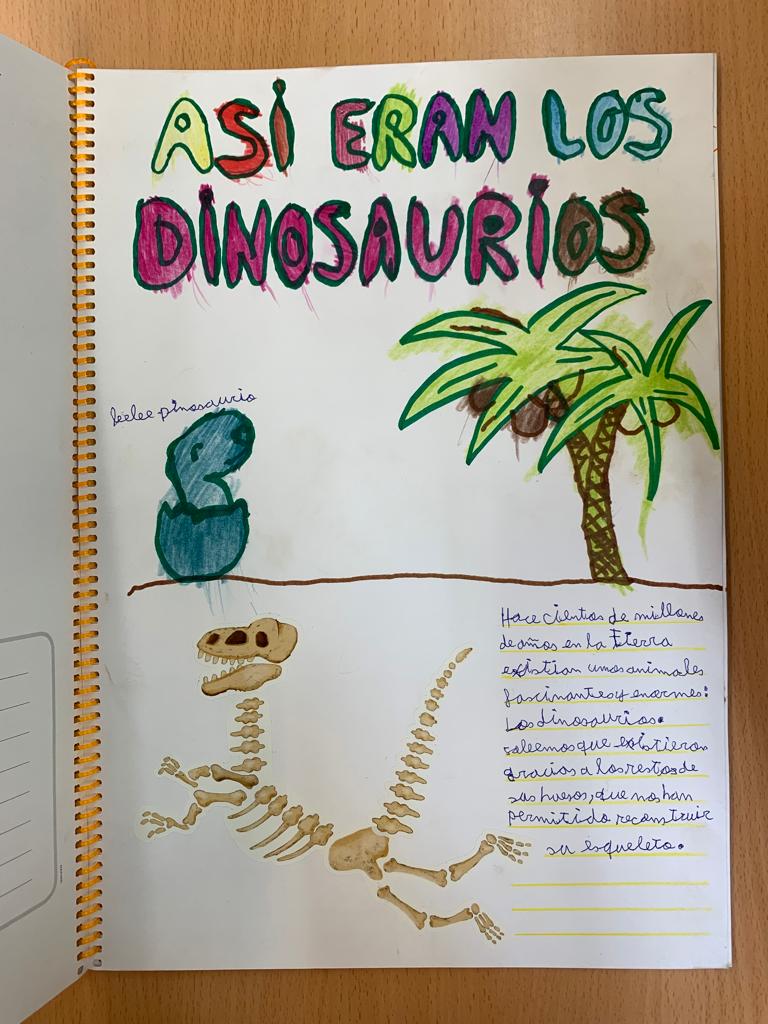 ASÍ ERAN LOS
DINOSAURIOS
bebe dinosaurio
Hace cientos de millones
de años en la tierra
existian unos animales
fascinantes y enormes:
Los dinosaurios.
sabemos que existieron
gracias a los restos de
sus huesos, que nos han
permitido reconstruir
su esqueleto.